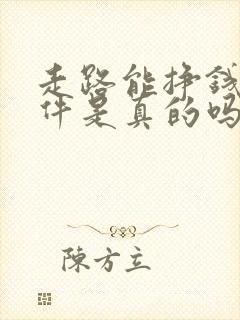 走路能挣钱
件是真的吗
陳方立